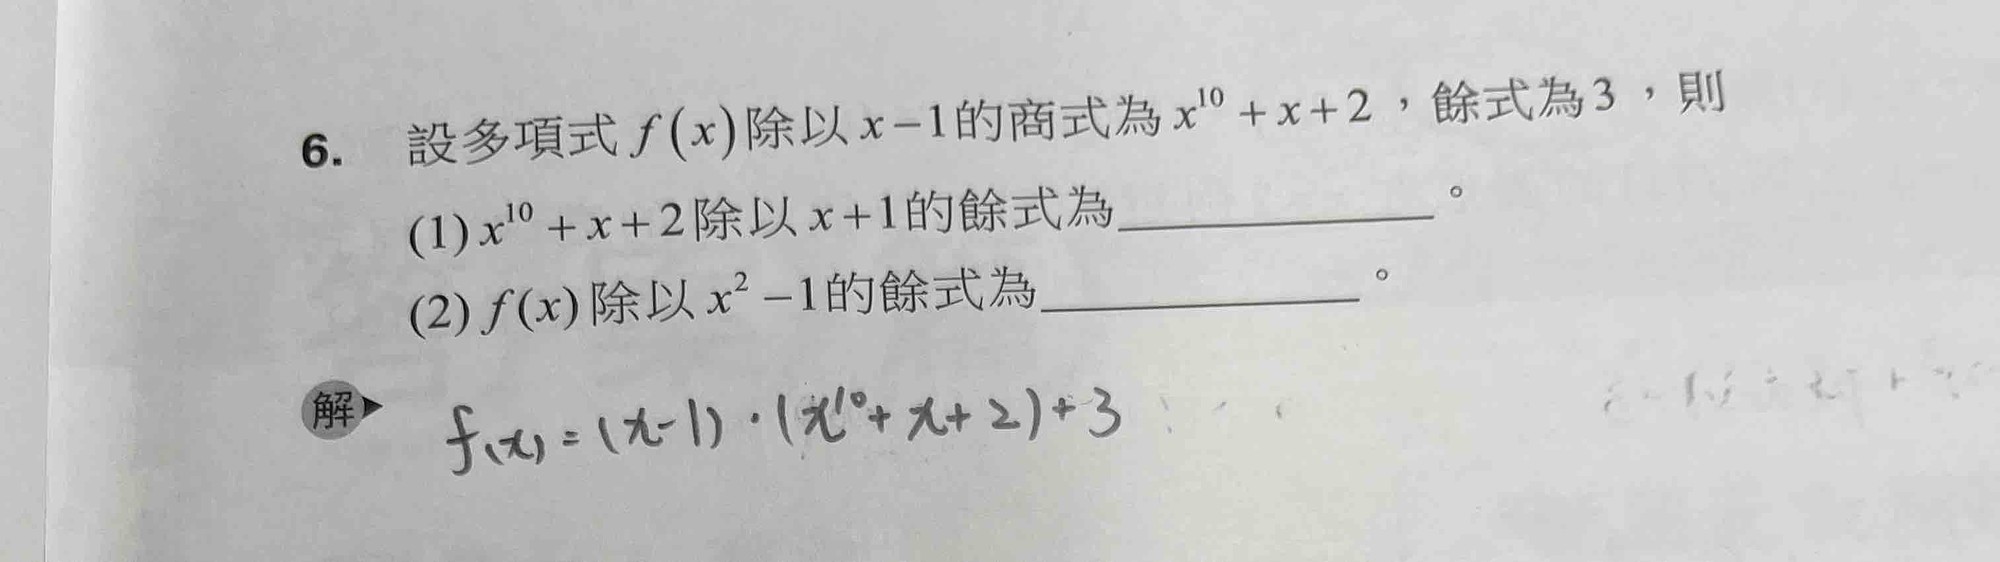 6. 設多項式 f(x) 除以 x−1 的商式為 x¹⁰+x+2，餘式為3，則
(1) x¹⁰+x+2 除以 x+1 的餘式為__________。
(2) f(x) 除以 x²−1 的餘式為__________。
解 f(x)=(x-1)·(x¹⁰+x+2)+3